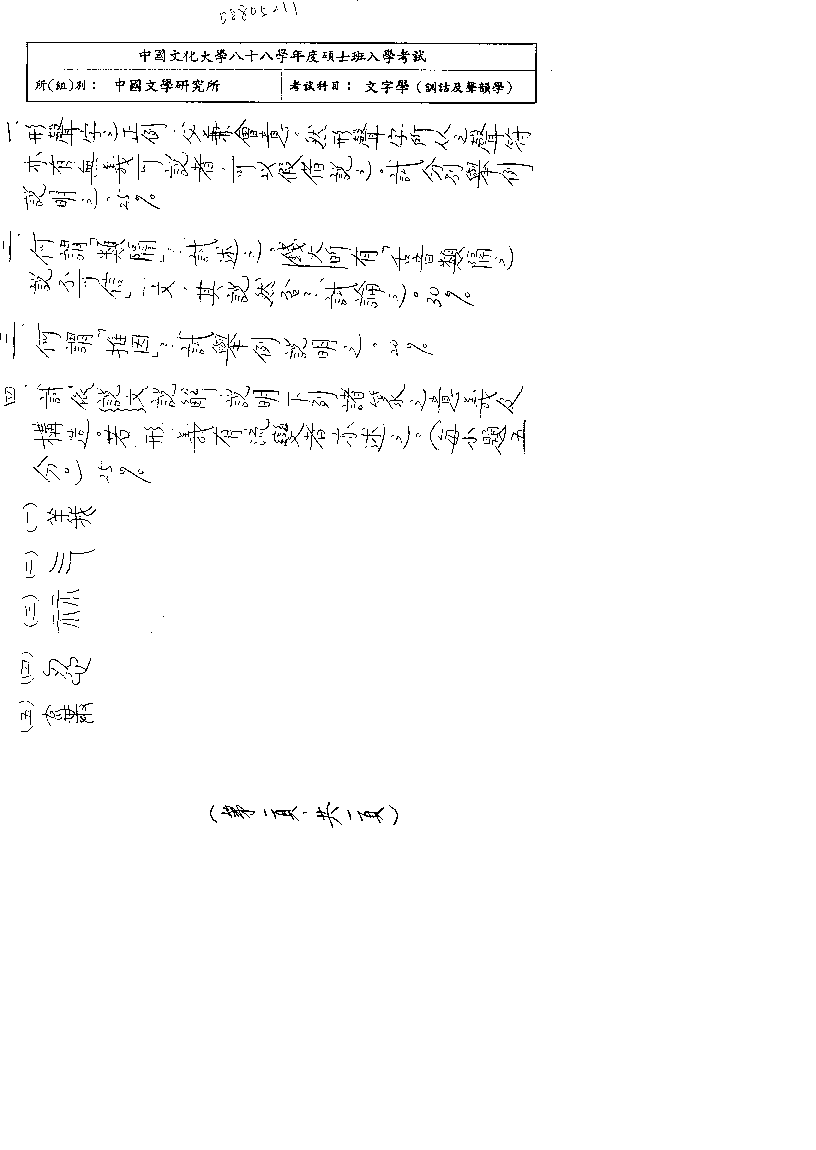 中國文化大學八十八學年度碩士班入學考試
所(組)別： 中國文學研究所 考試科目： 文字學（訓詁及聲韻學）
一、形聲字之正例，必兼會意，然形聲字所从之聲符
亦有無義可說者，可以假借說之。試分別舉例
說明之。25%
二、何謂「類隔」？試述之。錢大昕有「古音類隔之
說不可信」一文，其說然否？試論之。30%
三、何謂「推因」？試舉例說明之。20%
四、試依說文說解，說明下列諸篆之意義及
構造。若形、義有流變者亦述之。（每小題五
分。）25%
(一)
(二)
(三)
(四)
(五)
（第一頁，共一頁）